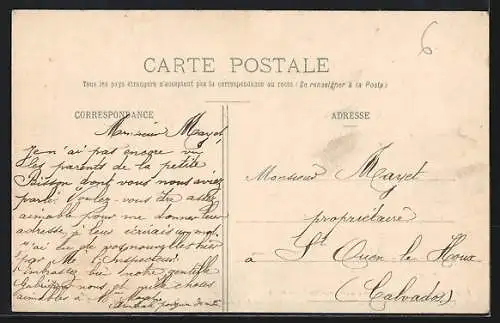 6
CARTE POSTALE
Tous les pays étrangers n'acceptent pas la correspondance au recto (Se renseigner à la Poste)
CORRESPONDANCE
ADRESSE
Monsieur Mayet
Je n'ai pas encore vu
les parents de la petite
Bisson dont vous nous aviez
parlé. Voulez-vous être assez
aimable pour me donner leur
adresse, à leur écrirais un mot
j'ai eu de vos nouvelles hier
par Mr l'Inspecteur.
Embrassez bien notre gentille
Gabrielle nous et mille choses
aimables à Mme
Monsieur Mayet
propriétaire
à St Ouen le Houx
(Calvados)